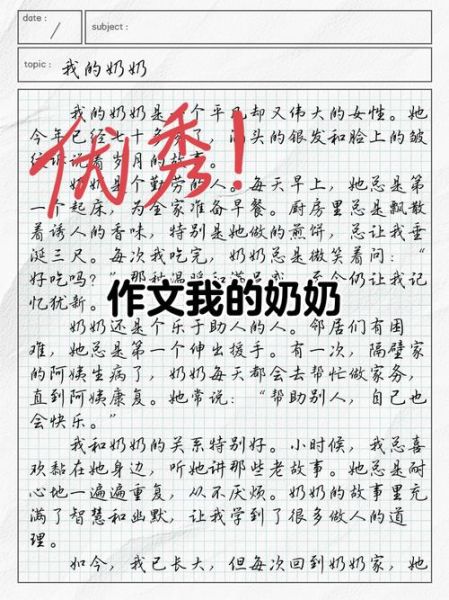 date :
/
subject :
topic : 我的奶奶
我的奶奶是个平凡却又伟大的女性。她
今年已经七十多了，满头的银发和脸上的皱
纹诉说着岁月的故事。
奶奶是个勤劳的人。每天早上，她总是第
一个起床，为全家准备早餐。厨房里总是飘散
着诱人的香味，特别是她做的煎饼，总让我垂
涎三尺。每次我吃完，奶奶总是微笑着问：“
好吃吗？”那种温暖和满足感，至今仍让我记
忆犹新。
优秀！
作文我的奶奶
奶奶还是个乐于助人的人。邻居们有困
难，她总是第一个伸出援手。有一次，隔壁家
的阿姨生病了，奶奶每天都会去帮忙做家务，
直到阿姨康复。她常说：“帮助别人，自己也
会快乐。”
我和奶奶的关系特别好。小时候，我总喜
欢黏在她身边，听她讲那些老故事。她总是耐
心地一遍遍重复，从不厌烦。奶奶的故事里充
满了智慧和幽默，让我学到了很多做人的道
理。
如今，我已长大，但每次回到奶奶家，她